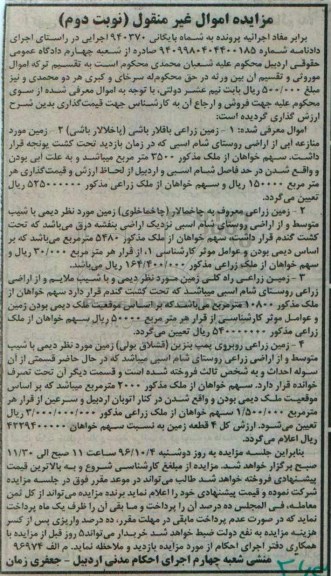 مزایده اموال غیر منقول (نوبت دوم)
برابر مفاد اجرائیه پرونده به شماره بایگانی ۹۴۰۳۷۰ اجرایی در راستای اجرای
دادنامه شماره ۹۴۰۹۹۸۰۴۰۴۴۰۰۱۸۵ صادره از شعبه چهارم دادگاه عمومی
حقوقی اردبیل محکوم علیه شعبان محمدی محکوم است به تقسیم ترکه اموال
موروثی و تقسیم آن بین ورثه در حق محکوم‌له سرخای و کبری هر دو محمدی و نیز
مبلغ ۵۰۰/۰۰۰ ریال بابت نیم عشر دولتی، با توجه به اموال معرفی شده از سوی
محکوم علیه جهت فروش و ارجاع آن به کارشناس جهت قیمت‌گذاری بدین شرح
ارزش گذاری گردیده است:
اموال معرفی شده: ۱ - زمین زراعی باقلار باشی (یاخلالار باشی) ۲ - زمین مورد
منازعه آبی از اراضی روستای شام اسبی که در زمان بازدید تحت کشت یونجه قرار
داشت، سهم خواهان از ملک مذکور ۳۵۰۰ متر مربع میباشد و به علت آبی بودن
و واقع شدن در حد فاصل شام اسبی و اردبیل از لحاظ ارزش و قیمت‌گذاری هر
متر مربع ۱۵۰۰۰۰ ریال و سهم خواهان از ملک زراعی مذکور ۵۲۵۰۰۰۰۰۰ ریال
تعیین می‌گردد.
۲ - زمین زراعی معروف به چاخمالار (چاخماخلوی) زمین مورد نظر دیمی با شیب
متوسط و از اراضی روستای شام اسبی نزدیک اراضی بنفشه درق می‌باشد که تحت
کشت گندم قرار داشت، سهم خواهان از ملک مذکور ۵۴۸۰ مترمربع می‌باشد که بر
اساس دیمی بودن و عوامل موثر کارشناسی ۱، از قرار هر متر مربع ۳۰/۰۰۰ ریال و
سهم خواهان از ملک زراعی مذکور ۱۶۴/۴۰۰/۰۰۰ ریال می‌باشد.
۳ - زمین زراعی راه کلی زمین مورد نظر دیمی و با شیب ملایم و از اراضی
زراعی روستای شام اسبی میباشد که تحت کشت گندم قرار دارد سهم خواهان از
ملک مذکور ۱۰۸۰۰ مترمربع می‌باشد که بر اساس موقعیت ملک دیمی بودن زمین
و عوامل موثر کارشناسی از قرار هر متر مربع ۵۰۰۰۰ ریال سهم خواهان از ملک
مذکور ۵۴۰۰۰۰۰۰۰ ریال تعیین می‌گردد.
۴ - زمین زراعی روبروی پمپ بنزین (قشلاق یولی) زمین مورد نظر دیمی با شیب
متوسط و از اراضی زراعی روستای شام اسبی میباشد که در حال حاضر قسمتی از آن
سوله احداث و به شخص ثالث فروخته شده است و قسمت دیگر آن تحت تصرف
خوانده قرار دارد. سهم خواهان از ملک مذکور ۲۰۰۰ مترمربع میباشد که بر اساس
موقعیت ملک دیمی بودن و واقع شدن در کنار اتوبان اردبیل و سرعین از قرار هر
مترمربع ۱/۵۰۰/۰۰۰ و سهم خواهان از ملک زراعی مذکور ۳/۰۰۰/۰۰۰/۰۰۰ ریال
تعیین می‌شود. ارزش کل ۴ قطعه زمین به نسبت سهم خواهان ۴۲۲۹۴۰۰۰۰۰
ریال اعلام می‌گردد.
بنابراین جلسه مزایده به روز دوشنبه ۹۶/۱۰/۴ ساعت ۱۱ صبح الی ۱۱/۳۰
صبح برگزار خواهد شد. مزایده از مبلغ کارشناسی شروع و به بالاترین قیمت
پیشنهادی فروخته خواهد شد طالب می‌تواند در موعد مقرر فوق در جلسه مزایده
شرکت نموده و قیمت پیشنهادی خود را اعلام نماید برنده مزایده می‌تواند از کل ثمن
معامله، فی المجلس ده درصد آن را پرداخت و ما بقی آن را ظرف یک ماه پرداخت
نماید که در صورت عدم پرداخت مابقی در مهلت مقرر، ده درصد واریزی پس از کسر
هزینه مزایده به نفع دولت ضبط خواهد شد خریدار می‌تواند ۵ روز قبل از مزایده با
همکاری دفتر اجرای احکام از مورد مزایده بازدید و ملاحظه نماید. م الف ۹۶۹۷۴
منشی شعبه چهارم اجرای احکام مدنی اردبیل - جعفری زمان